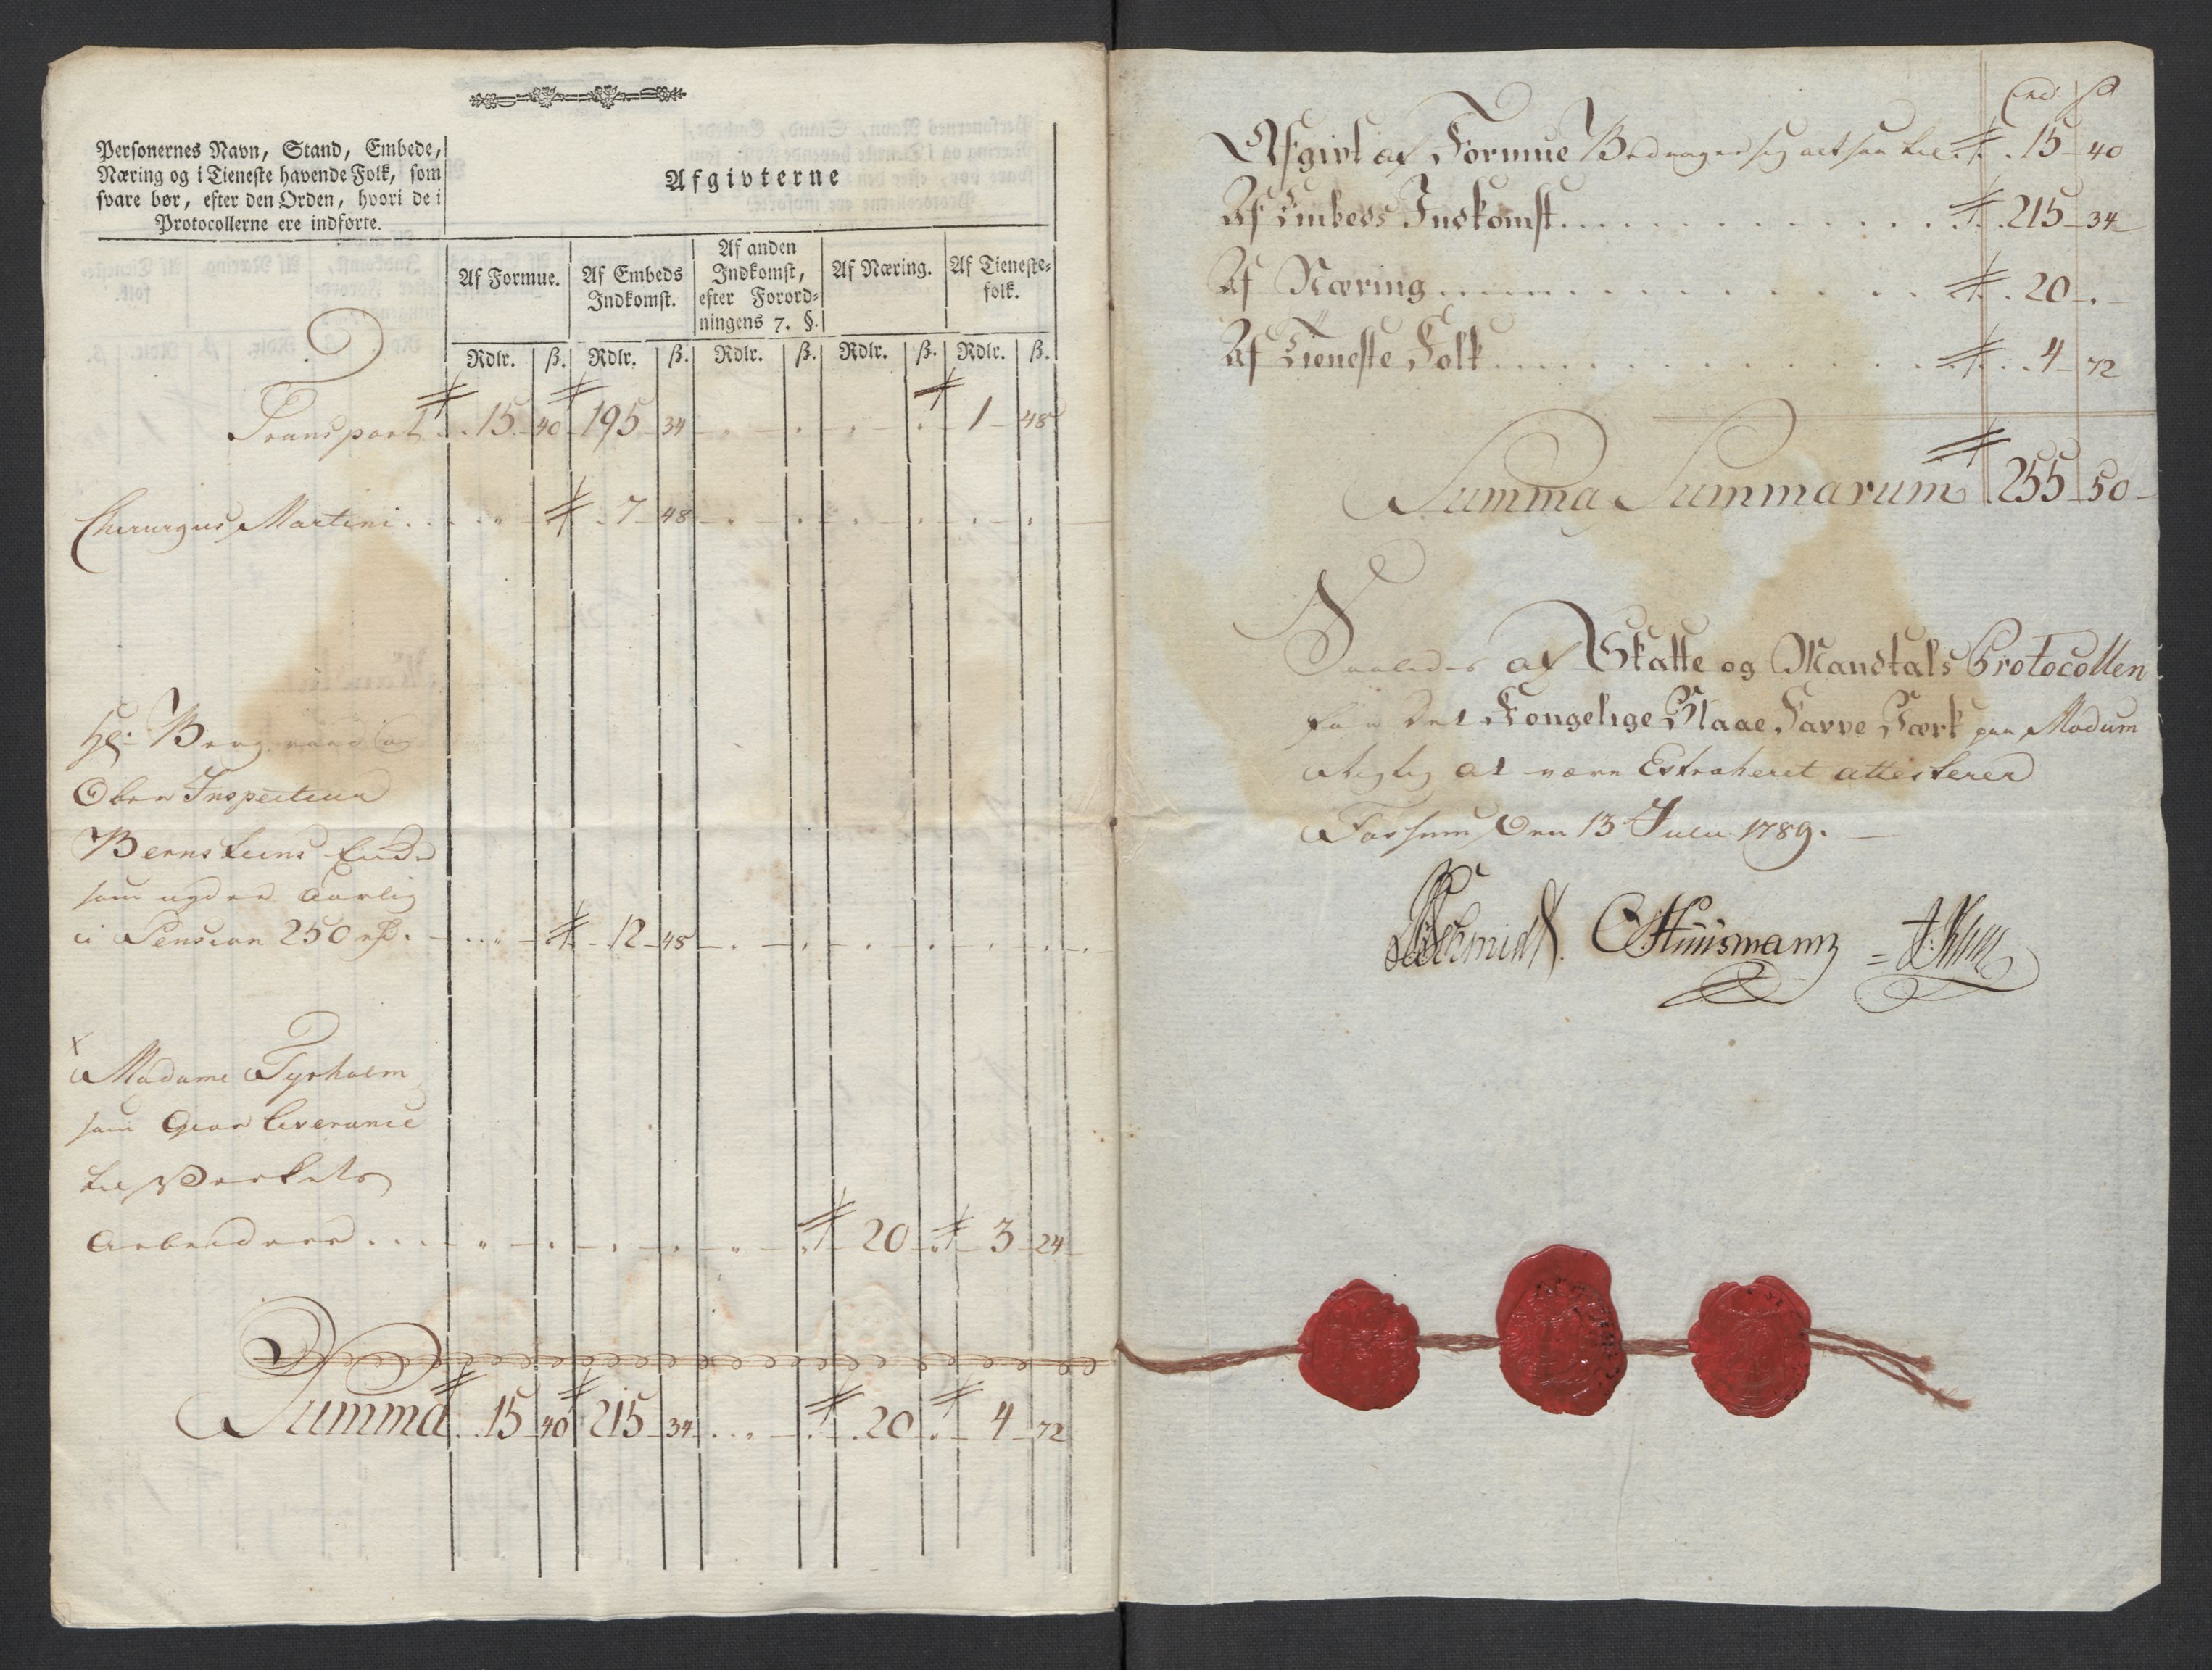 Personernes Navn, Stand, Embede,
Næring og i Tieneste havende Folk, som
svare bør, efter den Orden, hvori de i
Protocollerne ere indførte.
Afgivterne
Af Formue.
Af Embeds
Indkomst.
Af anden
Indkomst,
efter Forord-
ningens 7. §.
Af Næring.
Af Tieneste-
folk.
Rdlr. ß. Rdlr. ß. Rdlr. ß. Rdlr. ß. Rdlr. ß.
Transport 15 40 195 34 1 48
Chirurgus Martini 7 48
Hr. Bergraad og
Ober Inspecteur
Bernsteins Enke
som nyder Aarlig
i Pension 250 rd. 12 48
x
Madame Tyrholm
som Giør Leverance
til Værkets
Arbeidere 20 3 24
Summa 15 40 215 34 20 4 72
Afgivt af Formue Bedrager sig altsaa til 15 40
Af Embeds Indkomst 215 34
Af Næring 20
Af Tieneste Folk 4 72
Summa Summarum 255 50
Saaledes af Skatte og Mandtals Protocollen
for det Kongelige Blaae Farve Værk paa Modum
Rigtig at være Extraheret attesterer
Fossum den 13 Julii 1789.
Schmidt. Huusmann